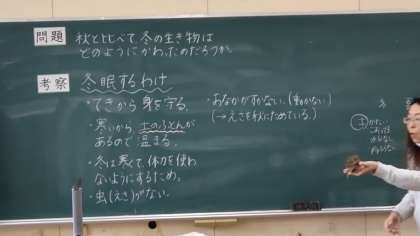 問題
秋と比べて、冬の生き物は
どのようにかわったのだろうか。
考察
冬眠するわけ
・てきから身を守る。
・寒いから土のふとんが
あるので温まる。
・冬は寒くて、体力を使わ
ないようにするため。
・虫(えさ)がない。
・おなかがすかない。(動かない)
(→えさを秋にためている。)
土
かたい